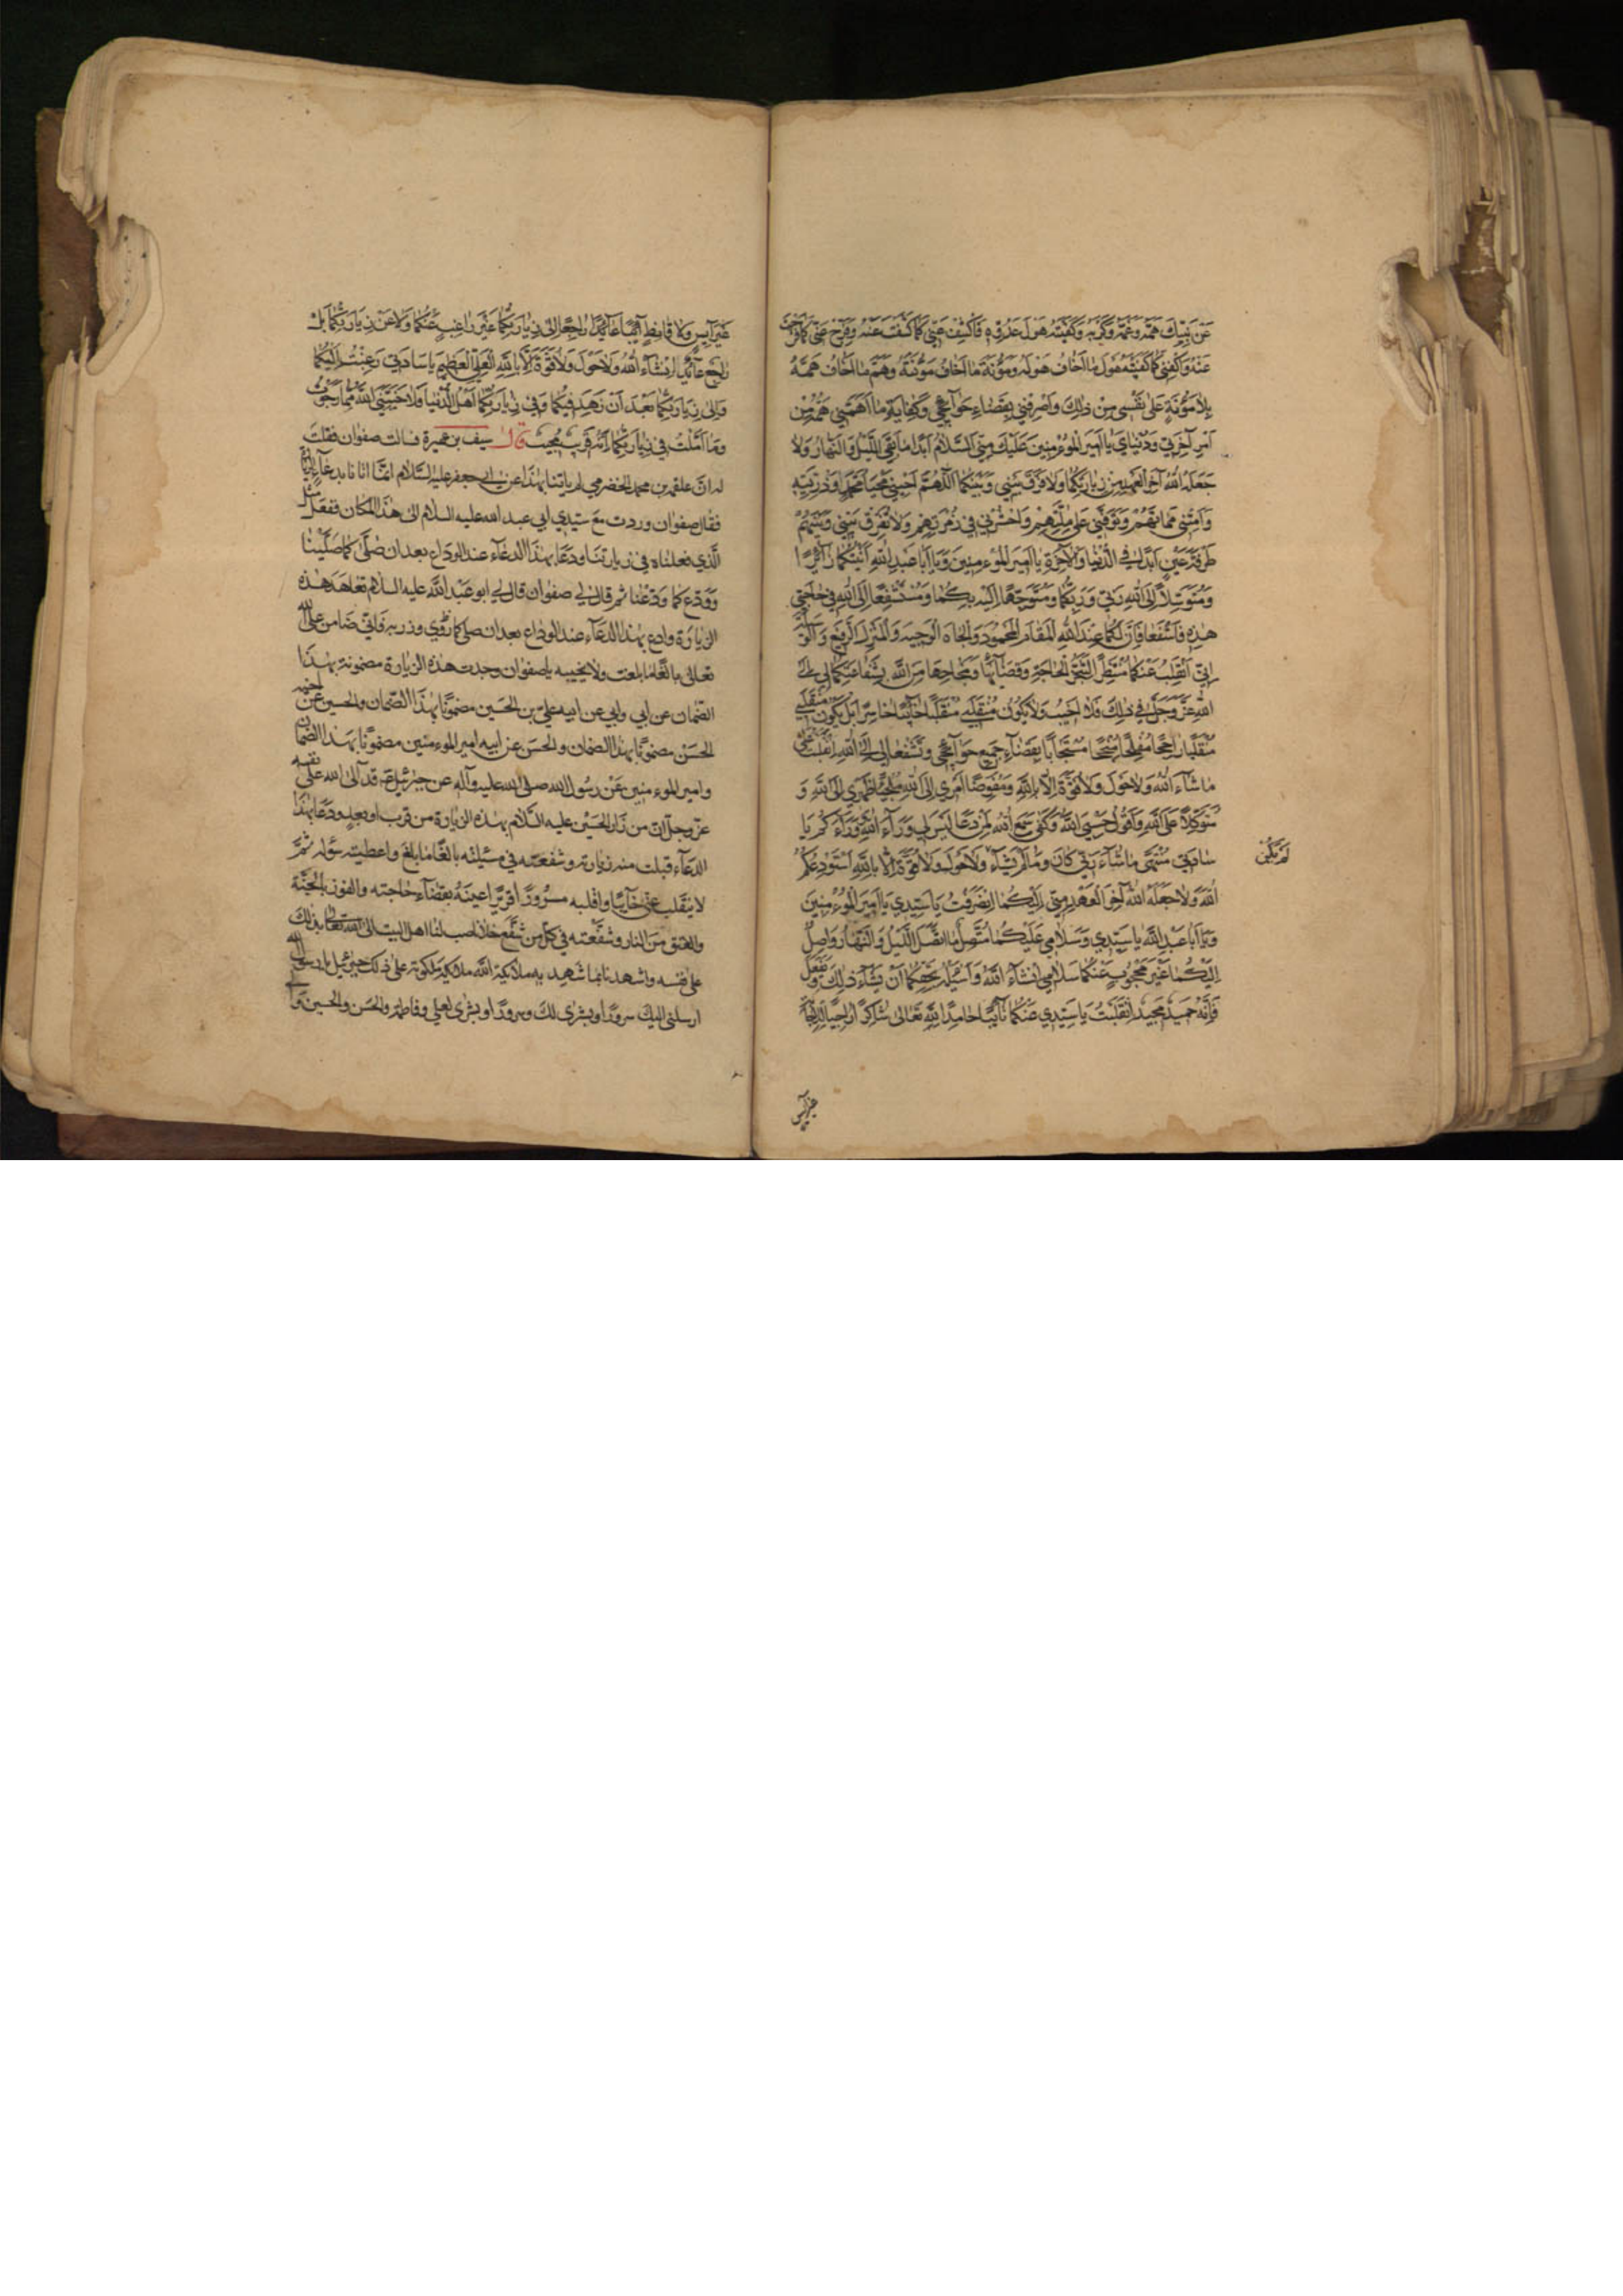 عَنْ نَبِيِّكَ هَمَّهُ وَغَمَّهُ وَكَرْبَهُ وَكَفَيْتَهُ هَوْلَ عَدُوِّهِ فَاكْشِفْ عَنِّي كَمَا كَشَفْتَ عَنْهُ وَفَرِّجْ عَنِّي كَمَا فَرَّجْتَ
عَنْهُ وَاكْفِنِي كَمَا كَفَيْتَهُ هَوْلَ مَا اَخَافُ هَوْلَهُ وَمَؤُنَةَ مَا اَخَافُ مَؤُنَتَهُ وَهَمَّ مَا اَخَافُ هَمَّهُ
بِلَا مَؤُنَةٍ عَلَى نَفْسِي مِنْ ذٰلِكَ وَاصْرِفْنِي بِقَضَاءِ حَوَآئِجِي وَكِفَايَةِ مَا اَهَمَّنِي هَمُّهُ مِنْ
اَمْرِ آخِرَتِي وَدُنْيَايَ يَا اَمِيرَ الْمُؤْمِنِينَ عَلَيْكَ مِنِّي السَّلَامُ اَبَدًا مَا بَقِيَ اللَّيْلُ وَالنَّهَارُ وَلَا
جَعَلَهُ اللهُ آخِرَ الْعَهْدِ مِنْ زِيَارَتِكُمَا وَلَا فَرَّقَ بَيْنِي وَبَيْنَكُمَا اَللّٰهُمَّ اَحْيِنِي مَحْيَا مُحَمَّدٍ وَذُرِّيَّتِهِ
وَاَمِتْنِي مَمَاتَهُمْ وَتَوَفَّنِي عَلَى مِلَّتِهِمْ وَاحْشُرْنِي فِي زُمْرَتِهِمْ وَلَا تُفَرِّقْ بَيْنِي وَبَيْنَهُمْ
طَرْفَةَ عَيْنٍ اَبَدًا فِي الدُّنْيَا وَالْآخِرَةِ يَا اَمِيرَ الْمُؤْمِنِينَ وَيَا اَبَا عَبْدِ اللهِ اَتَيْتُكُمَا زَائِرًا
وَمُتَوَسِّلًا اِلَى اللهِ رَبِّي وَرَبِّكُمَا وَمُتَوَجِّهًا اِلَيْهِ بِكُمَا وَمُسْتَشْفِعًا اِلَى اللهِ فِي حَاجَتِي
هٰذِهِ فَاشْفَعَا فَاِنَّ لَكُمَا عِنْدَ اللهِ الْمَقَامَ الْمَحْمُودَ وَالْجَاهَ الْوَجِيهَ وَالْمَنْزِلَ الرَّفِيعَ وَالْوَسِيلَةَ
اِنِّي اَنْقَلِبُ عَنْكُمَا مُنْتَظِرًا لِتَنَجُّزِ الْحَاجَةِ وَقَضَائِهَا وَنَجَاحِهَا مِنَ اللهِ بِشَفَاعَتِكُمَا لِي اِلَى
اللهِ عَزَّ وَجَلَّ فِي ذٰلِكَ فَلَا اَخِيبُ وَلَا يَكُونُ مُنْقَلَبِي مُنْقَلَبًا خَائِبًا خَاسِرًا بَلْ يَكُونُ مُنْقَلَبِي
مُنْقَلَبًا رَاجِحًا مُفْلِحًا مُنْجِحًا مُسْتَجَابًا بِقَضَآءِ جَمِيعِ حَوَآئِجِي وَتَشْفَعَا لِي اِلَى اللهِ اَنْقَلِبُ عَلَى
مَا شَآءَ اللهُ وَلَا حَوْلَ وَلَا قُوَّةَ اِلَّا بِاللهِ وَمُفَوِّضًا اَمْرِي اِلَى اللهِ مُلْجِئًا ظَهْرِي اِلَى اللهِ وَ
مُتَوَكِّلًا عَلَى اللهِ وَاَقُولُ حَسْبِيَ اللهُ وَكَفَى سَمِعَ اللهُ لِمَنْ دَعَا لَيْسَ لِي وَرَآءَ اللهِ وَوَرَآءَكُمْ يَا
سَادَتِي مُنْتَهًى مَا شَآءَ رَبِّي كَانَ وَمَا لَمْ يَشَأْ وَلَا حَوْلَ وَلَا قُوَّةَ اِلَّا بِاللهِ اَسْتَوْدِعُكُمُ
لَمْ يَكُنْ
اللهَ وَلَا جَعَلَهُ اللهُ آخِرَ الْعَهْدِ مِنِّي اِلَيْكُمَا اِنْصَرَفْتُ يَا سَيِّدِي يَا اَمِيرَ الْمُؤْمِنِينَ
وَيَا اَبَا عَبْدِ اللهِ يَا سَيِّدِي وَسَلَامِي عَلَيْكُمَا مُتَّصِلٌ مَا اتَّصَلَ اللَّيْلُ وَالنَّهَارُ وَاصِلٌ
اِلَيْكُمَا غَيْرَ مَحْجُوبٍ عَنْكُمَا سَلَامِي اِنْشَآءَ اللهُ وَاَسْئَلُهُ بِحَقِّكُمَا اَنْ يَشَآءَ ذٰلِكَ وَيَفْعَلَ
فَاِنَّهُ حَمِيدٌ مَجِيدٌ اِنْقَلَبْتُ يَا سَيِّدِي عَنْكُمَا تَائِبًا حَامِدًا لِلّٰهِ تَعَالَى شَاكِرًا رَاجِيًا لِلْاِجَابَةِ
غير آيس
غَيْرَ آيِسٍ وَلَا قَانِطٍ آئِبًا عَآئِدًا رَاجِعًا اِلَى زِيَارَتِكُمَا غَيْرَ رَاغِبٍ عَنْكُمَا وَلَا عَنْ زِيَارَتِكُمَا بَلْ
رَاجِعٌ عَآئِدٌ اِنْشَآءَ اللهُ وَلَا حَوْلَ وَلَا قُوَّةَ اِلَّا بِاللهِ الْعَلِيِّ الْعَظِيمِ يَا سَادَتِي رَغِبْتُ اِلَيْكُمَا
وَاِلَى زِيَارَتِكُمَا بَعْدَ اَنْ زَهِدَ فِيكُمَا وَفِي زِيَارَتِكُمَا اَهْلُ الدُّنْيَا فَلَا خَيَّبَنِيَ اللهُ مِمَّا رَجَوْتُ
وَمَا اَمَّلْتُ فِي زِيَارَتِكُمَا اِنَّهُ قَرِيبٌ مُجِيبٌ قال سيف بن عميرة فسالت صفوان فقلت
له ان علقمه بن محمد الحضرمي لم ياتنا بهٰذا عن ابي جعفر عليه السلام انما اتانا بدعآء الزيارة
فقال صفوان وردت مع سيدي ابي عبد الله عليه السلام الى هٰذا المكان ففعل مثل
الذي فعلناه في زيارتنا ودعا بهٰذا الدعآء عند الوداع بعد ان صلّى كما صلّينا
وودع كما ودّعنا ثم قال لي صفوان قال لي ابو عبد الله عليه السلام تعاهد هٰذه
الزيارة وادع بهٰذا الدعآء عند الوداع بعد ان وزر به فاني ضامن على الله
تعالى بالغا ما بلغت ولا يخيبه يا صفوان وجدت هٰذه الزيارة مضمونة بهٰذا
الضمان عن ابي وابي عن ابيه علي بن الحسين مضمونا بهٰذا الضمان والحسين عن اخيه
الحسن مضمونا بهٰذا الضمان والحسن عن ابيه امير المؤمنين مضمونا بهٰذا الضمان
وامير المؤمنين عن رسول الله صلى الله عليه وآله عن جبرئيل قد آلى الله على نفسه
عز وجل ان من زار الحسين عليه السلام بهٰذه الزيارة من قرب او بعد ودعا بهٰذا
الدعآء قبلت منه زيارته وشفعته في مسئلته بالغا ما بلغ واعطيته سؤله ثم
لا ينقلب عني خآئبا واقلبه مسرورا قريرا عينه بقضآء حاجته والفوز بالجنّة
والعتق من النار وشفّعته في كل من شفع خلا ناصب لنا اهل البيت الى الله تعالى بذلك
على نفسه واشهدنا بما شهد به ملائكة الله ملائكة ملكوته على ذلك جبرئيل يا رسول الله
ارسلني اليك سرورا وبشرى لك وسرورا وبشرى لعلي وفاطمة والحسن والحسين و